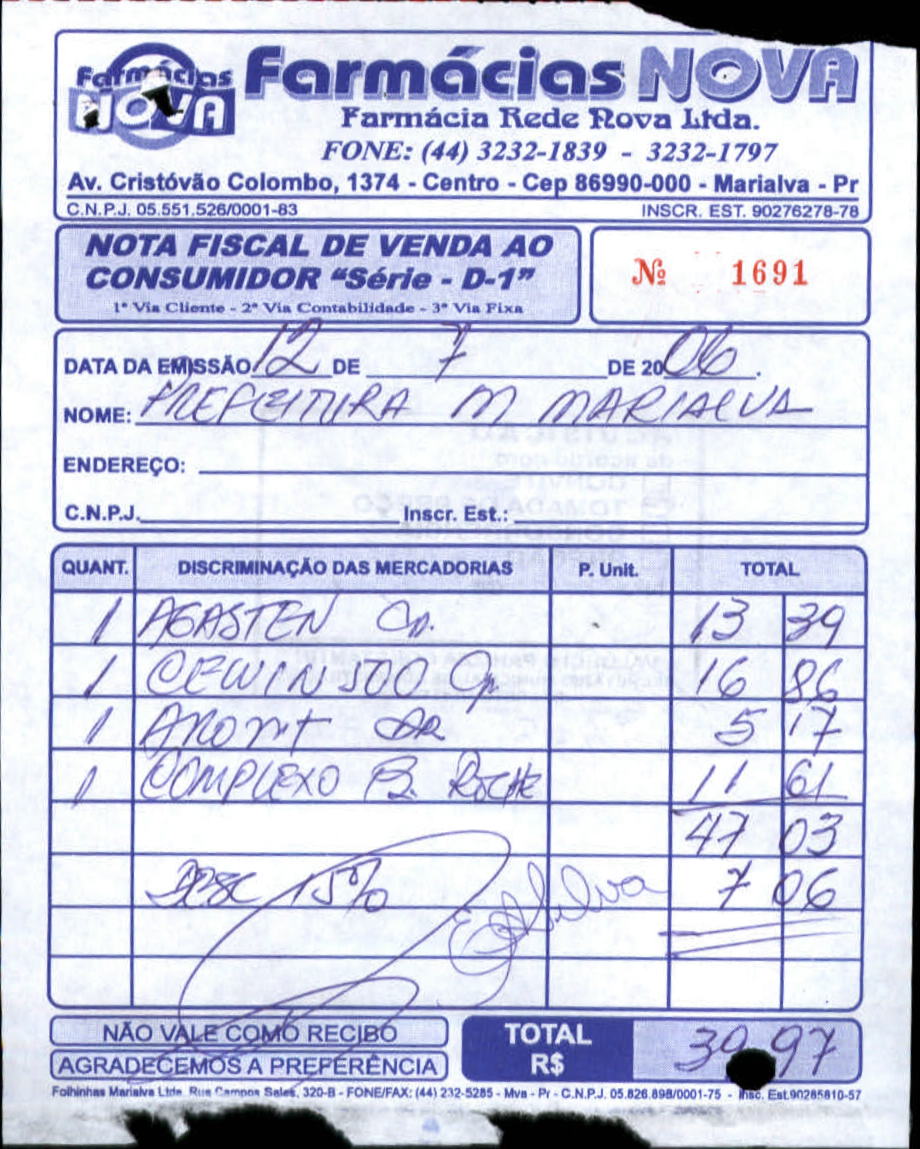 Farmácias NOVA
Farmácias NOVA
Farmácia Rede Nova Ltda.
FONE: (44) 3232-1839 - 3232-1797
Av. Cristóvão Colombo, 1374 - Centro - Cep 86990-000 - Marialva - Pr
C.N.P.J. 05.551.526/0001-83 INSCR. EST. 90276278-78
NOTA FISCAL DE VENDA AO
CONSUMIDOR “Série - D-1”
1ª Via Cliente - 2ª Via Contabilidade - 3ª Via Fixa
Nº 1691
DATA DA EMISSÃO 12 DE 7 DE 2006.
NOME: PREFEITURA M MARIALVA
ENDEREÇO:
C.N.P.J. Inscr. Est.:
QUANT. DISCRIMINAÇÃO DAS MERCADORIAS P. Unit. TOTAL
1 AGASTEN CO. 13 39
1 CEWIN 500 16 86
1 5 17
1 COMPLEXO B. ROCHE 11 61
47 03
DESC 15% 7 06
Silva
NÃO VALE COMO RECIBO
AGRADECEMOS A PREFERÊNCIA
TOTAL
R$ 39 97
Folhinhas Marialva Ltda. Rua Campos Sales, 320-B - FONE/FAX: (44) 232-5285 - Mva - Pr - C.N.P.J. 05.826.898/0001-75 - Insc. Est.90285810-57